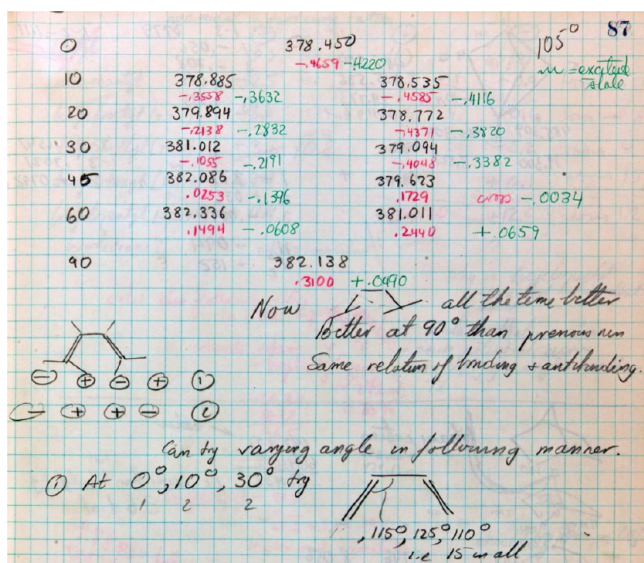 87
0 378.450 105°
-.4659 -.4220 m = excited state
10 378.885 378.535
-.3558 -.3632 -.4585 -.4116
20 379.894 378.772
-.2138 -.2832 -.4371 -.3820
30 381.012 379.094
-.1055 -.2191 -.4048 -.3382
45 382.086 379.623
.0253 -.1396 .1729 -.0034
60 382.336 381.011
.1494 -.0608 .2440 +.0659
90 382.138
.3100 +.0490
Now all the time better
Better at 90° than previous run
Same relation of binding + antibinding.
- + - + 1
- + + - 2
Can try varying angle in following manner.
① At 0°, 10°, 30° try
1 2 2
, 115°, 125°, 110°
i.e 15 in all